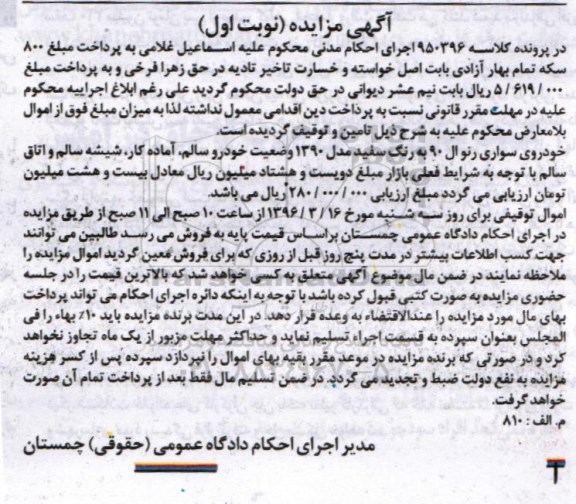 آگهی مزایده (نوبت اول)
در پرونده کلاسه ۹۵۰۳۹۶ اجرای احکام مدنی محکوم علیه اسماعیل غلامی به پرداخت مبلغ ۸۰۰
سکه تمام بهار آزادی بابت اصل خواسته و خسارت تاخیر تادیه در حق زهرا فرخی و به پرداخت مبلغ
۵/۶۱۹/۰۰۰ ریال بابت نیم عشر دیوانی در حق دولت محکوم گردید علی رغم ابلاغ اجراییه محکوم
علیه در مهلت مقرر قانونی نسبت به پرداخت دین اقدامی معمول نداشته لذا به میزان مبلغ فوق از اموال
بلامعارض محکوم علیه به شرح ذیل تامین و توقیف گردیده است.
خودروی سواری رنو ال ۹۰ به رنگ سفید مدل ۱۳۹۰ وضعیت خودرو سالم، آماده کار، شیشه سالم و اتاق
سالم با توجه به شرایط فعلی بازار مبلغ دویست و هشتاد میلیون ریال معادل بیست و هشت میلیون
تومان ارزیابی می گردد مبلغ ارزیابی ۲۸۰/۰۰۰/۰۰۰ ریال می باشد.
اموال توقیفی برای روز سه شنبه مورخ ۱۳۹۶/۳/۱۶ از ساعت ۱۰ صبح الی ۱۱ صبح از طریق مزایده
در اجرای احکام دادگاه عمومی چمستان براساس قیمت پایه به فروش می رسد طالبین می توانند
جهت کسب اطلاعات بیشتر در مدت پنج روز قبل از روزی که برای فروش معین گردید اموال مزایده را
ملاحظه نمایند در ضمن مال موضوع آگهی متعلق به کسی خواهد شد که بالاترین قیمت را در جلسه
حضوری مزایده به صورت کتبی قبول کرده باشد با توجه به اینکه دائره اجرای احکام می تواند پرداخت
بهای مال مورد مزایده را عندالاقتضاء به وعده قرار دهد. در این مدت برنده مزایده باید ۱۰٪ بهاء را فی
المجلس بعنوان سپرده به قسمت اجراء تسلیم نماید و حداکثر مهلت مزبور از یک ماه تجاوز نخواهد
کرد و در صورتی که برنده مزایده در موعد مقرر بقیه بهای اموال را نپردازد سپرده پس از کسر هزینه
مزایده به نفع دولت ضبط و تجدید می گردد. در ضمن تسلیم مال فقط بعد از پرداخت تمام آن صورت
خواهد گرفت.
م الف: ۸۱۰
مدیر اجرای احکام دادگاه عمومی (حقوقی) چمستان